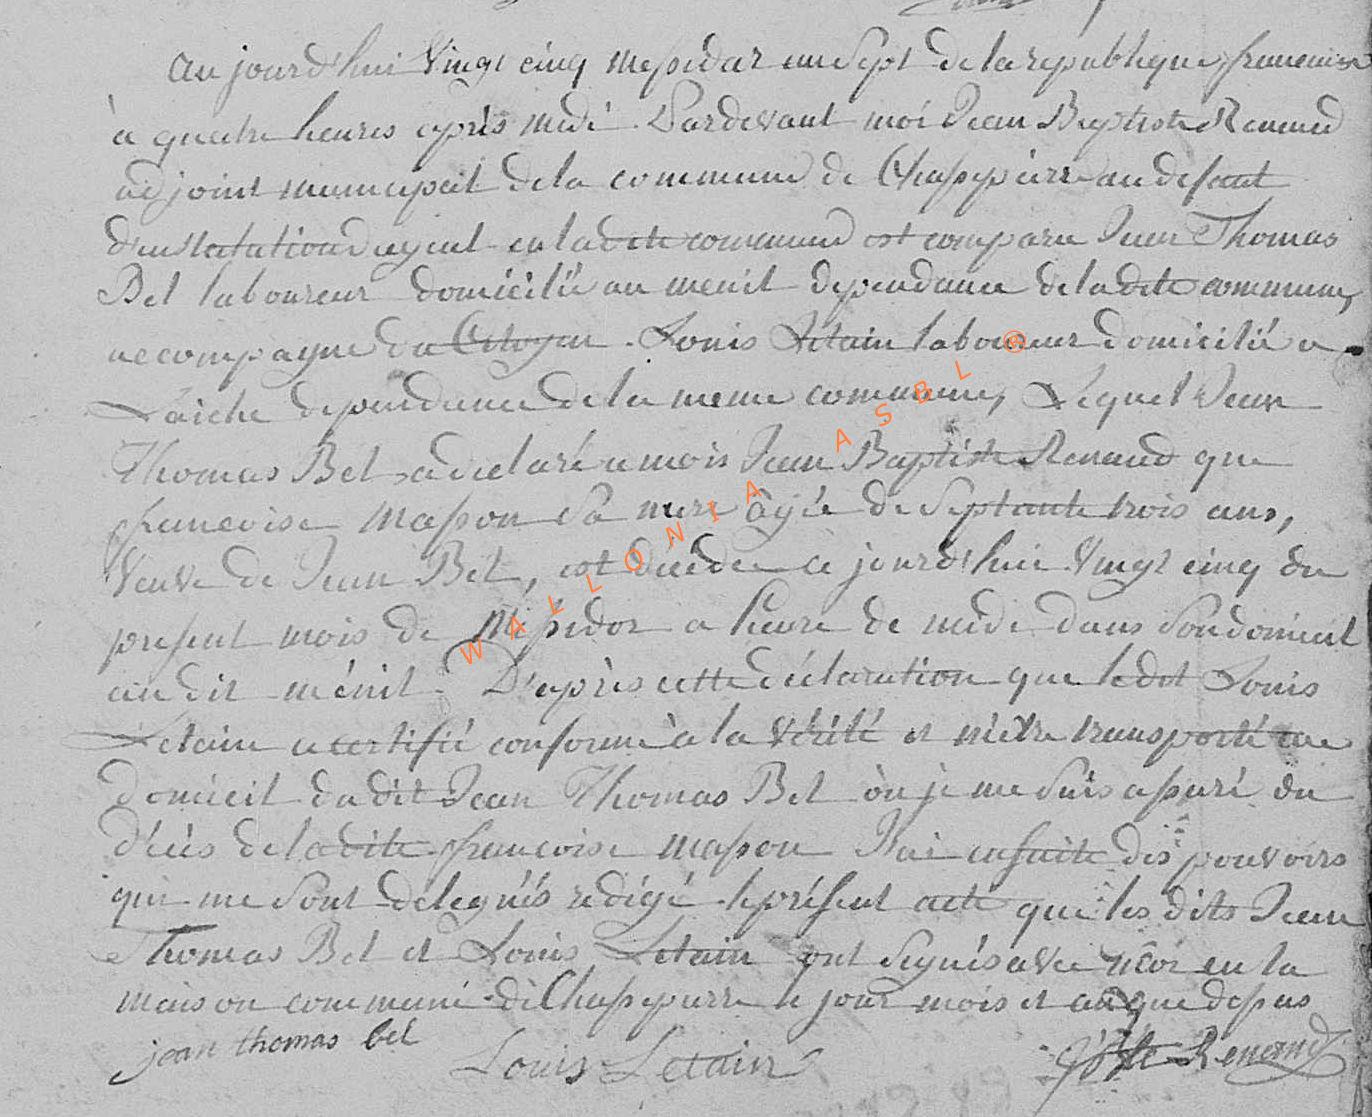 aujourd'huit Vingt cinq messidar an Sept de la republique francaise
à quatre heures après midi Pardevant moi Jean Baptiste Renaud
adjoint municipal de la commune de Chassepierre au defaut
d'instalation d'agent en la dite commune est comparu Jean Thomas
Bel laboureur domicilié au menil dependance de la dite commune,
accompagné du Citoyen Louis Letain laboureur domicilié a
Laiche dependance de la meme commune, Lequel Jean
Thomas Bel a declaré a mois Jean Baptiste Renaud que
francoise masson Sa mere àgée de Septante trois ans,
Veuve de Jean Bel, est décédée ce jourd'hui Vingt cinq du
present mois de Messidor a heure de midi dans Son domicil
au dit ménil. D'après cette déclaration que le dit Louis
Letain a certifié conforme à la Vérité et m'etre transporté au
domicil du dit Jean Thomas Bel òu je me suis assuré du
décès de la dite francoise masson J'ai ensuite des pouvoirs
qui me Sont délegués redigé le présent acte que les dits Jean
Thomas Bel et Louis Letain ont Signés avec moi en la
maison commune de Chassepierre le jour mois et an que depus
jean thomas bel
Louis Letain
Renaud
WALLONIA ASBL ®